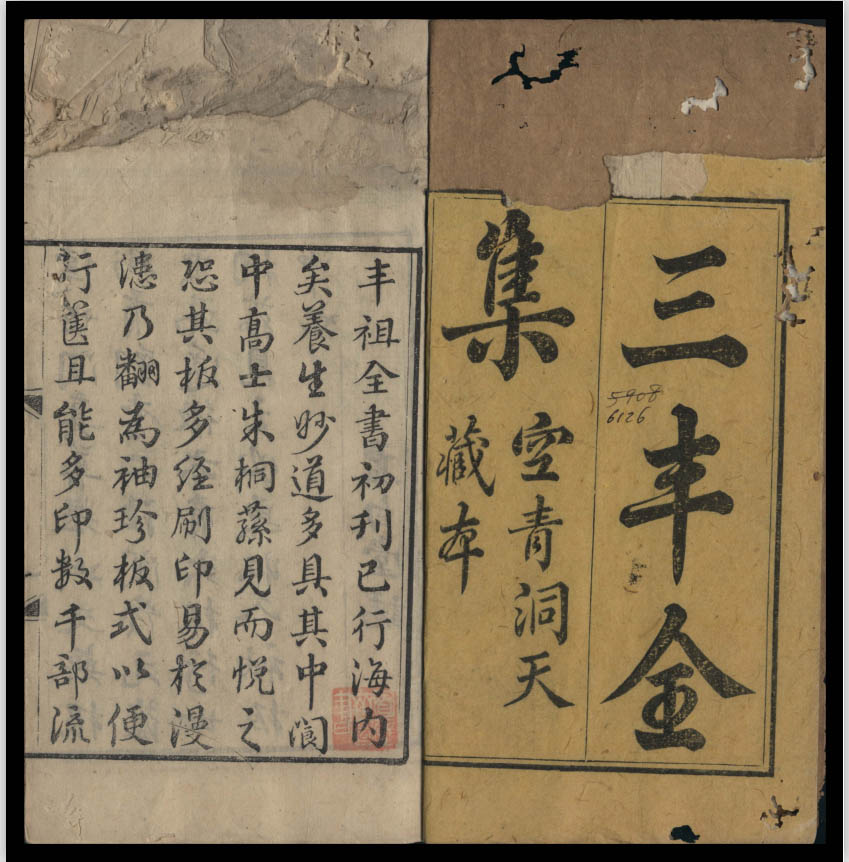 三丰全
集
空青洞天
藏本
5908
6126
丰祖全書初刊已行海内
矣養生妙道多具其中閬
中高士朱桐蓀見而悦之
恐其板多経刷印易於漫
漶乃翻為袖珍板式以便
行篋且能多印数千部流